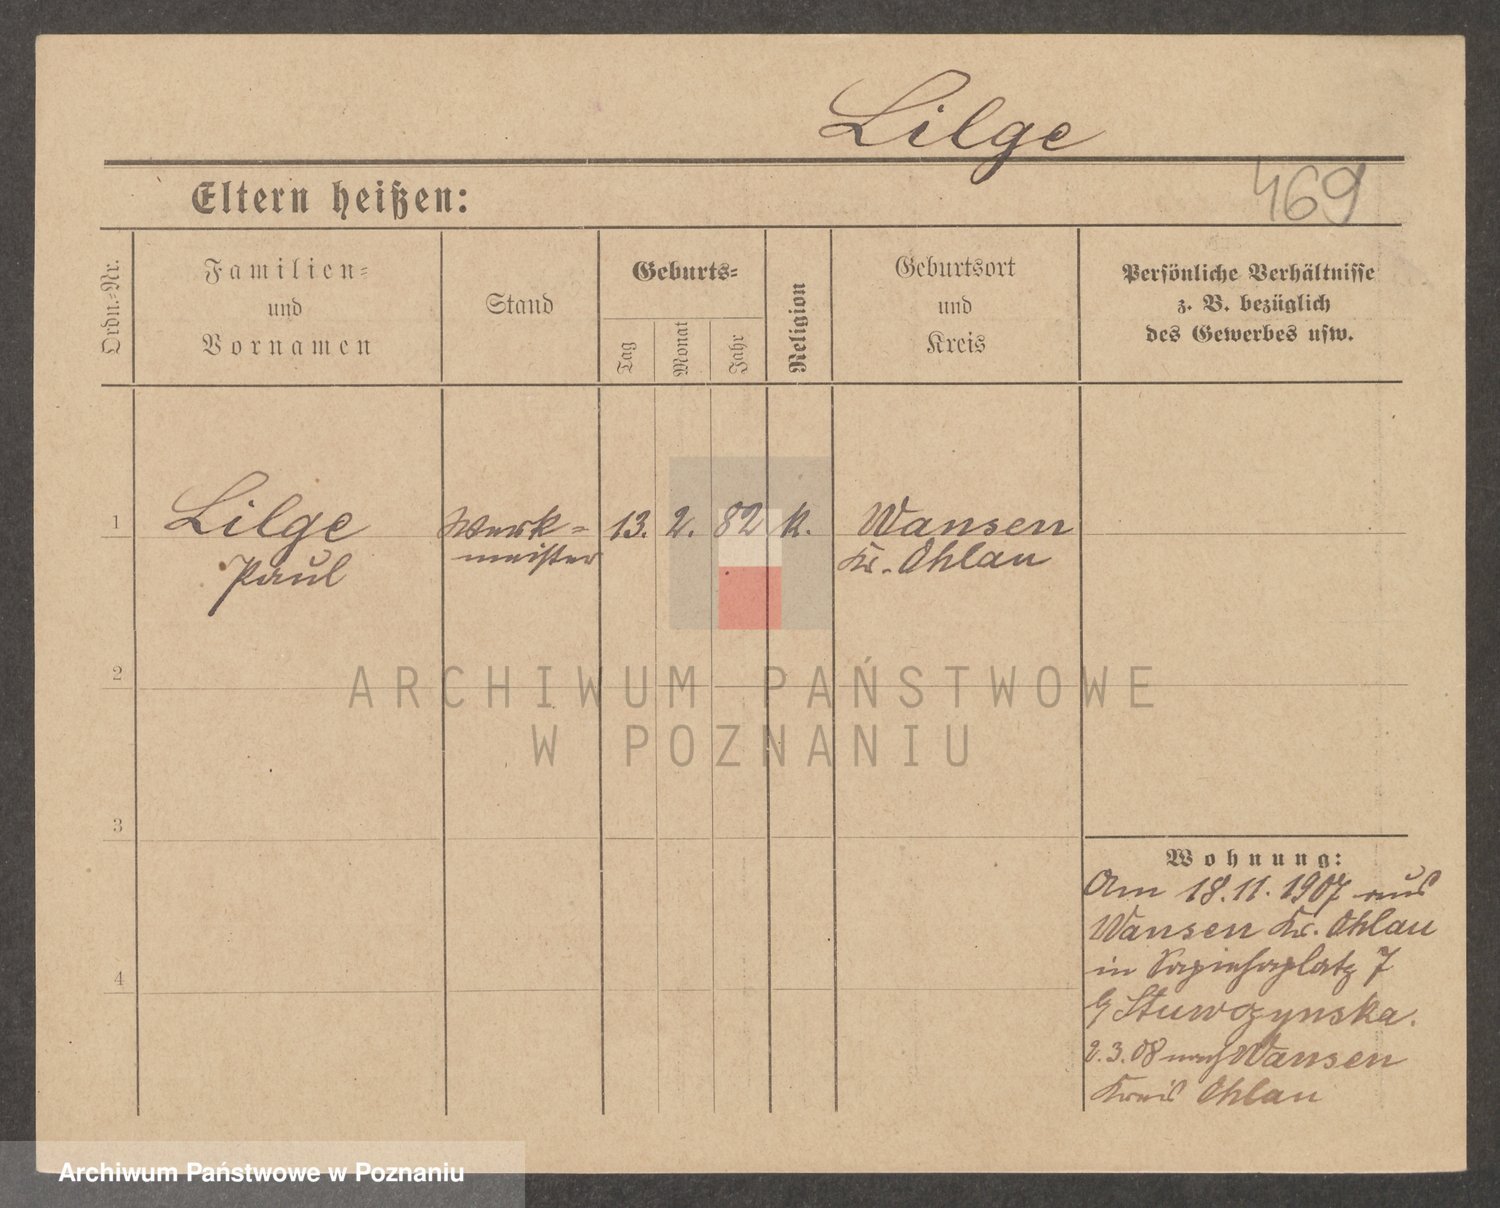 Lilge
469
Eltern heißen:
Ordn.-Nr.
Familien-
und
Vornamen
Stand
Geburts-
Tag
Monat
Jahr
Religion
Geburtsort
und
Kreis
Persönliche Verhältnisse
z. B. bezüglich
des Gewerbes usw.
1
Lilge
Paul
Werk-
meister
13. 2. 82 k.
Wansen
Kr. Ohlau
2
ARCHIWUM PAŃSTWOWE
W POZNANIU
3
4
Wohnung:
Am 18.11.1907 aus
Wansen Kr. Ohlau
in Sapiehaplatz 7
Stuwczynska.
2.3.08 nach Wansen
Kreis Ohlau
Archiwum Państwowe w Poznaniu